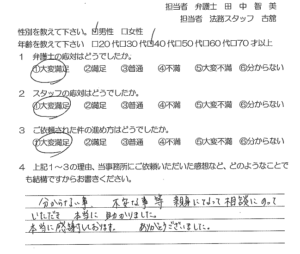 担当者 弁護士 田中智美
担当者 法務スタッフ 古舘
性別を教えて下さい。☑男性 □女性
年齢を教えて下さい □20代□30代☑40代□50代□60代□70才以上
1 弁護士の応対はどうでしたか。
①大変満足 ②満足 ③普通 ④不満 ⑤大変不満 ⑥分からない
2 スタッフの応対はどうでしたか。
①大変満足 ②満足 ③普通 ④不満 ⑤大変不満 ⑥分からない
3 ご依頼された件の進め方はどうでしたか。
①大変満足 ②満足 ③普通 ④不満 ⑤大変不満 ⑥分からない
4 上記1～3の理由、当事務所にご依頼いただいた感想など、どのようなことで
も結構ですからお書きください。
分からない事 不安な事等 親身になって相談にのって
いただき 本当に助かりました。
本当に感謝しております。 ありがとうございました。